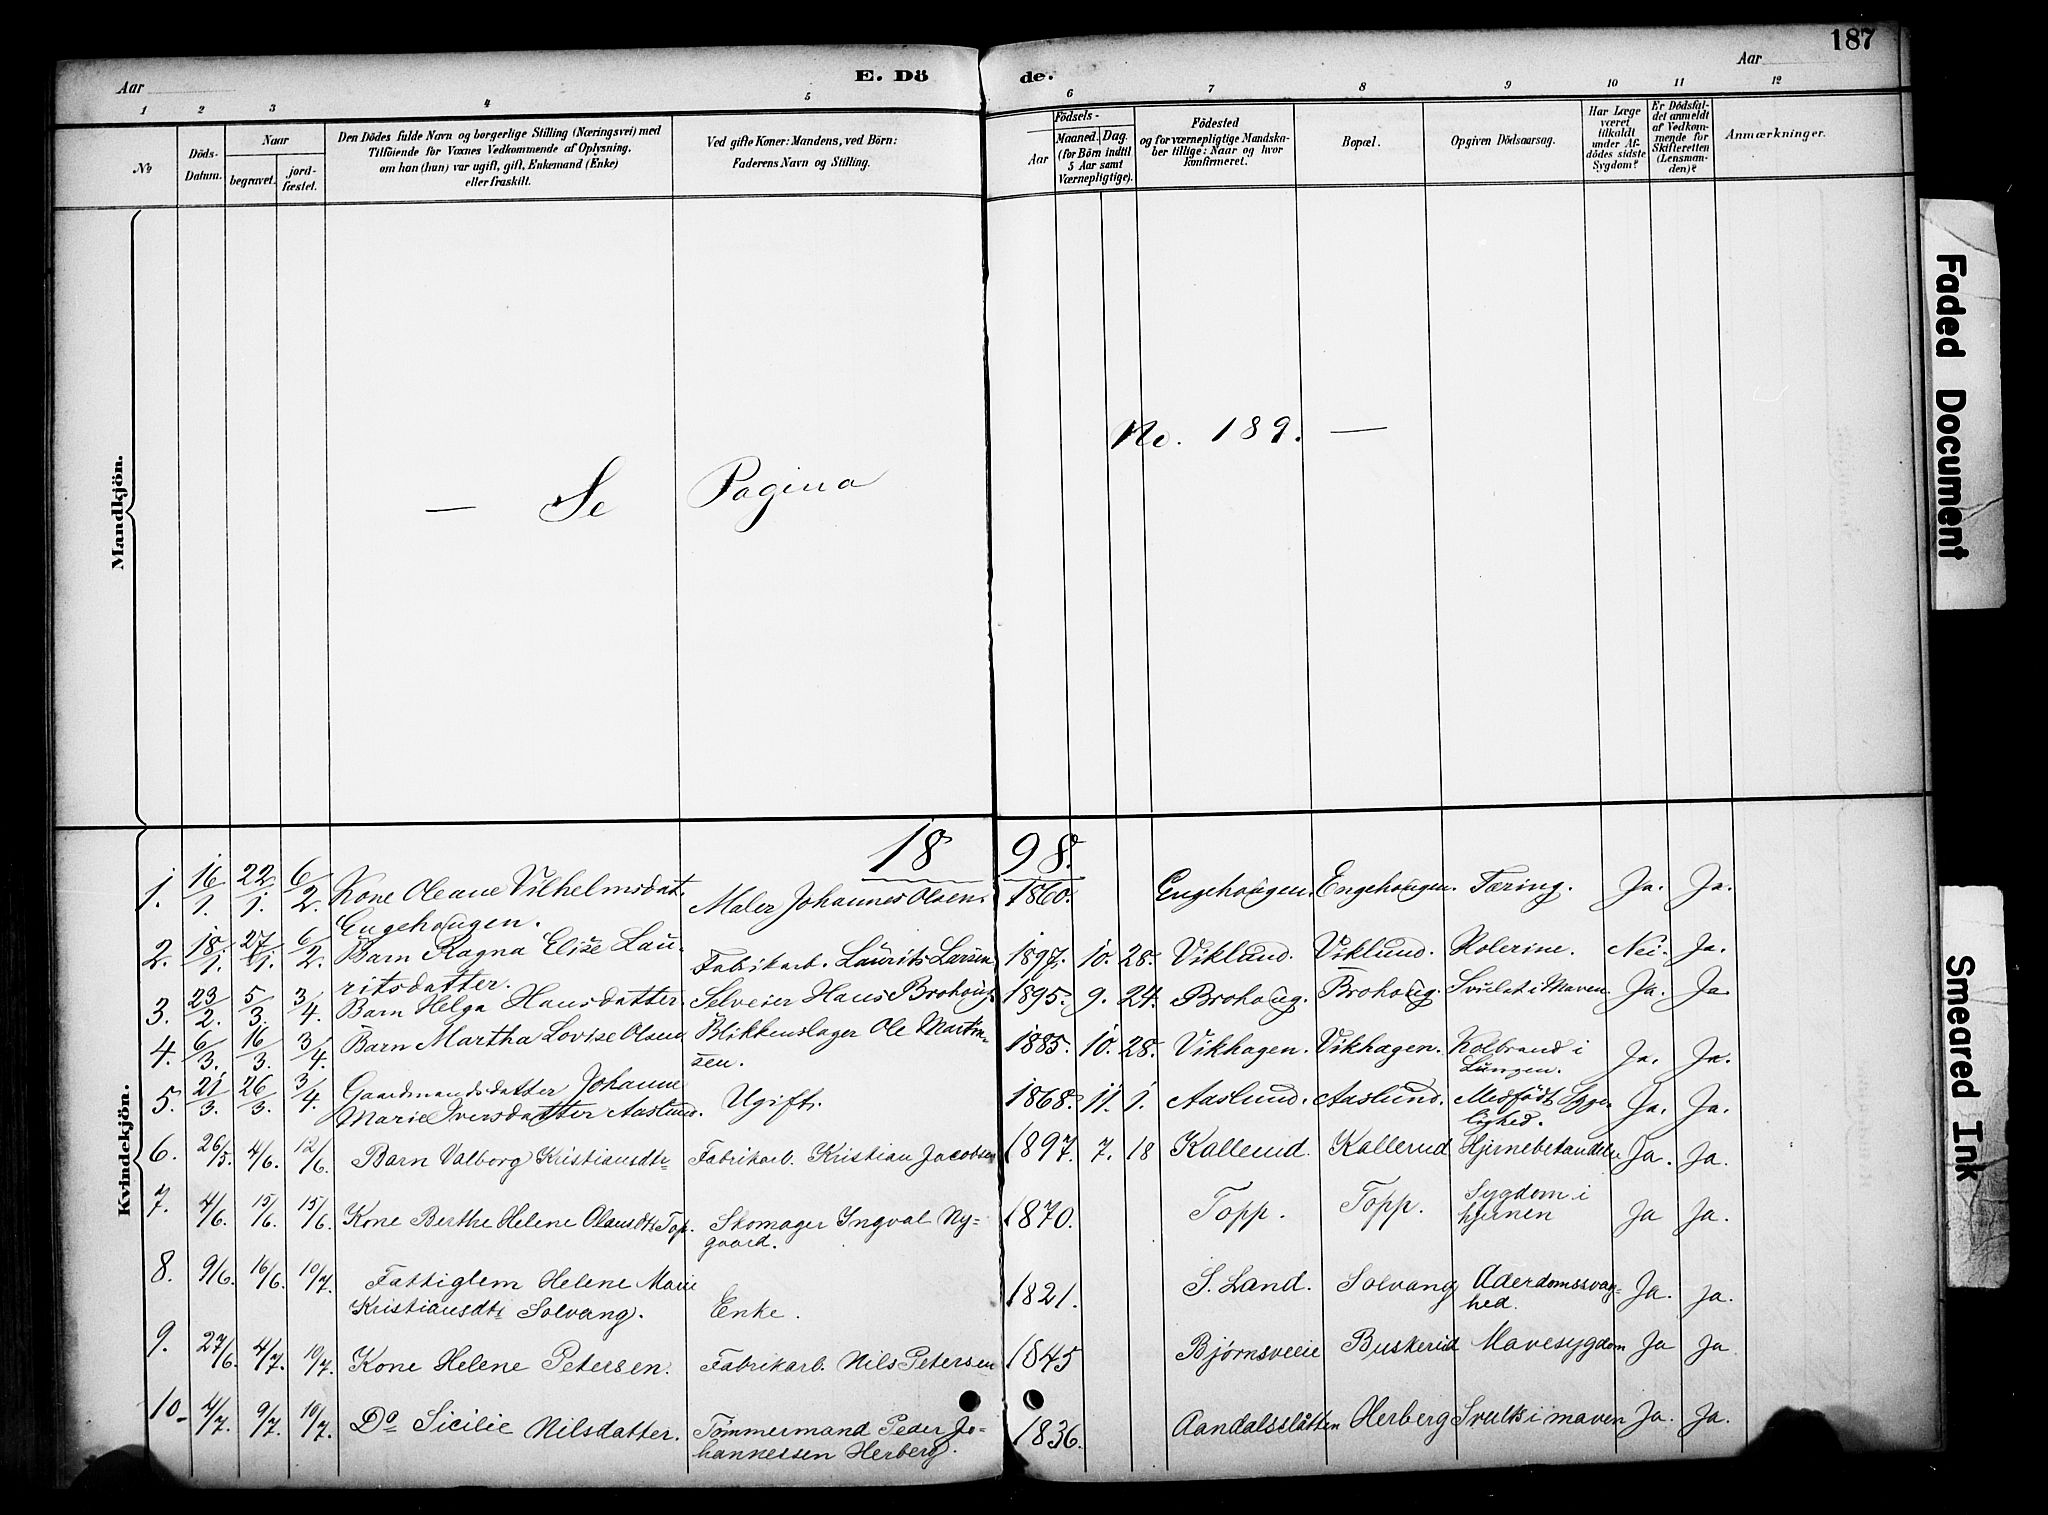 187
Aar
E. Dö
de.
Aar
1 2 3 4 5 6 7 8 9 10 11 12
No
Döds-
Datum.
Naar
begravet.
jord-
fæstet.
Den Dödes fulde Navn og borgerlige Stilling (Næringsvei) med
Tilföiende for Voxnes Vedkommende af Oplysning,
om han (hun) var ugift, gift, Enkemand (Enke)
eller fraskilt.
Ved gifte Koner: Mandens, ved Börn:
Faderens Navn og Stilling.
Födsels-
Aar
Maaned. Dag.
(for Börn indtil
5 Aar samt
Værnepligtige).
Födested
og for værnepligtige Mandska-
ber tillige: Naar og hvor
konfirmeret.
Bopæl.
Opgiven Dödsaarsag.
Har Læge
været
tilkaldt
under Af-
dödes sidste
Sygdom?
Er Dödsfal-
det anmeldt
af Vedkom-
mende for
Skifteretten
(Lensman-
den)?
Anmærkninger.
Mandkjön.
— Se Pagina No. 189. —
Kvindekjön.
1898.
1. 16/1. 22/1. 6/2. Kone Oleane Vilhelmsdat. Maler Johannes Olsen. 1860. Engehougen. Engehougen. Tæring. Ja. Ja.
Engehougen.
2. 18/1. 27/1. 6/2. Barn Ragna Elise Lau- Fabrikarb. Laurits Larsen 1897. 10. 28. Viklund. Viklund. Kolerine. Nei. Ja.
ritsdatter.
3. 23/2. 5/3. 3/4. Barn Helga Hansdatter Selveier Hans Brohoug 1895. 9. 24. Brohoug. Brohoug. Svulst i Maven. Ja. Ja.
4. 6/3. 16/3. 3/4. Barn Martha Lovise Olsen Blikkenslager Ole Martin- 1885. 10. 28. Vikhagen. Vikhagen. Kolbrand i Ja. Ja.
sen. Lungen.
5. 21/3. 26/3. 3/4. Gaardmandsdatter Johanne Ugift. 1868. 11. 1. Aaslund. Aaslund. Medfödt Syge- Ja. Ja.
Marie Iversdatter Aaslund. lighed.
6. 26/5. 4/6. 12/6. Barn Valborg Kristiansdtr Fabrikarb. Kristian Jacobsen 1897. 7. 18 Kallerud. Kallerud Hjernebetændelse Ja. Ja.
7. 4/6. 15/6. 15/6. Kone Berthe Helene Olausdtr Top. Skomager Ingval Ny- 1870. Topp. Topp. Sygdom i Ja Ja.
gaard. hjernen
8. 9/6. 16/6. 10/7. Fattiglem Helene Marie Enke. 1821. S. Land. Solvang Alderdomssvag- Ja. Ja.
Kristiansdtr Solvang. hed.
9. 27/6. 4/7. 10/7. Kone Helene Petersen. Fabrikarb. Nils Petersen 1845 Bjørnsveie Buskerud Mavesygdom Ja Ja
10. 4/7. 9/7. 10/7. Do Sicilie Nilsdatter. Tømmermand Peder Jo- 1836. Aandalsslåtten Herberg Svulst i maven Ja. Ja.
hannessen Herberg.
Faded Document
Smeared Ink